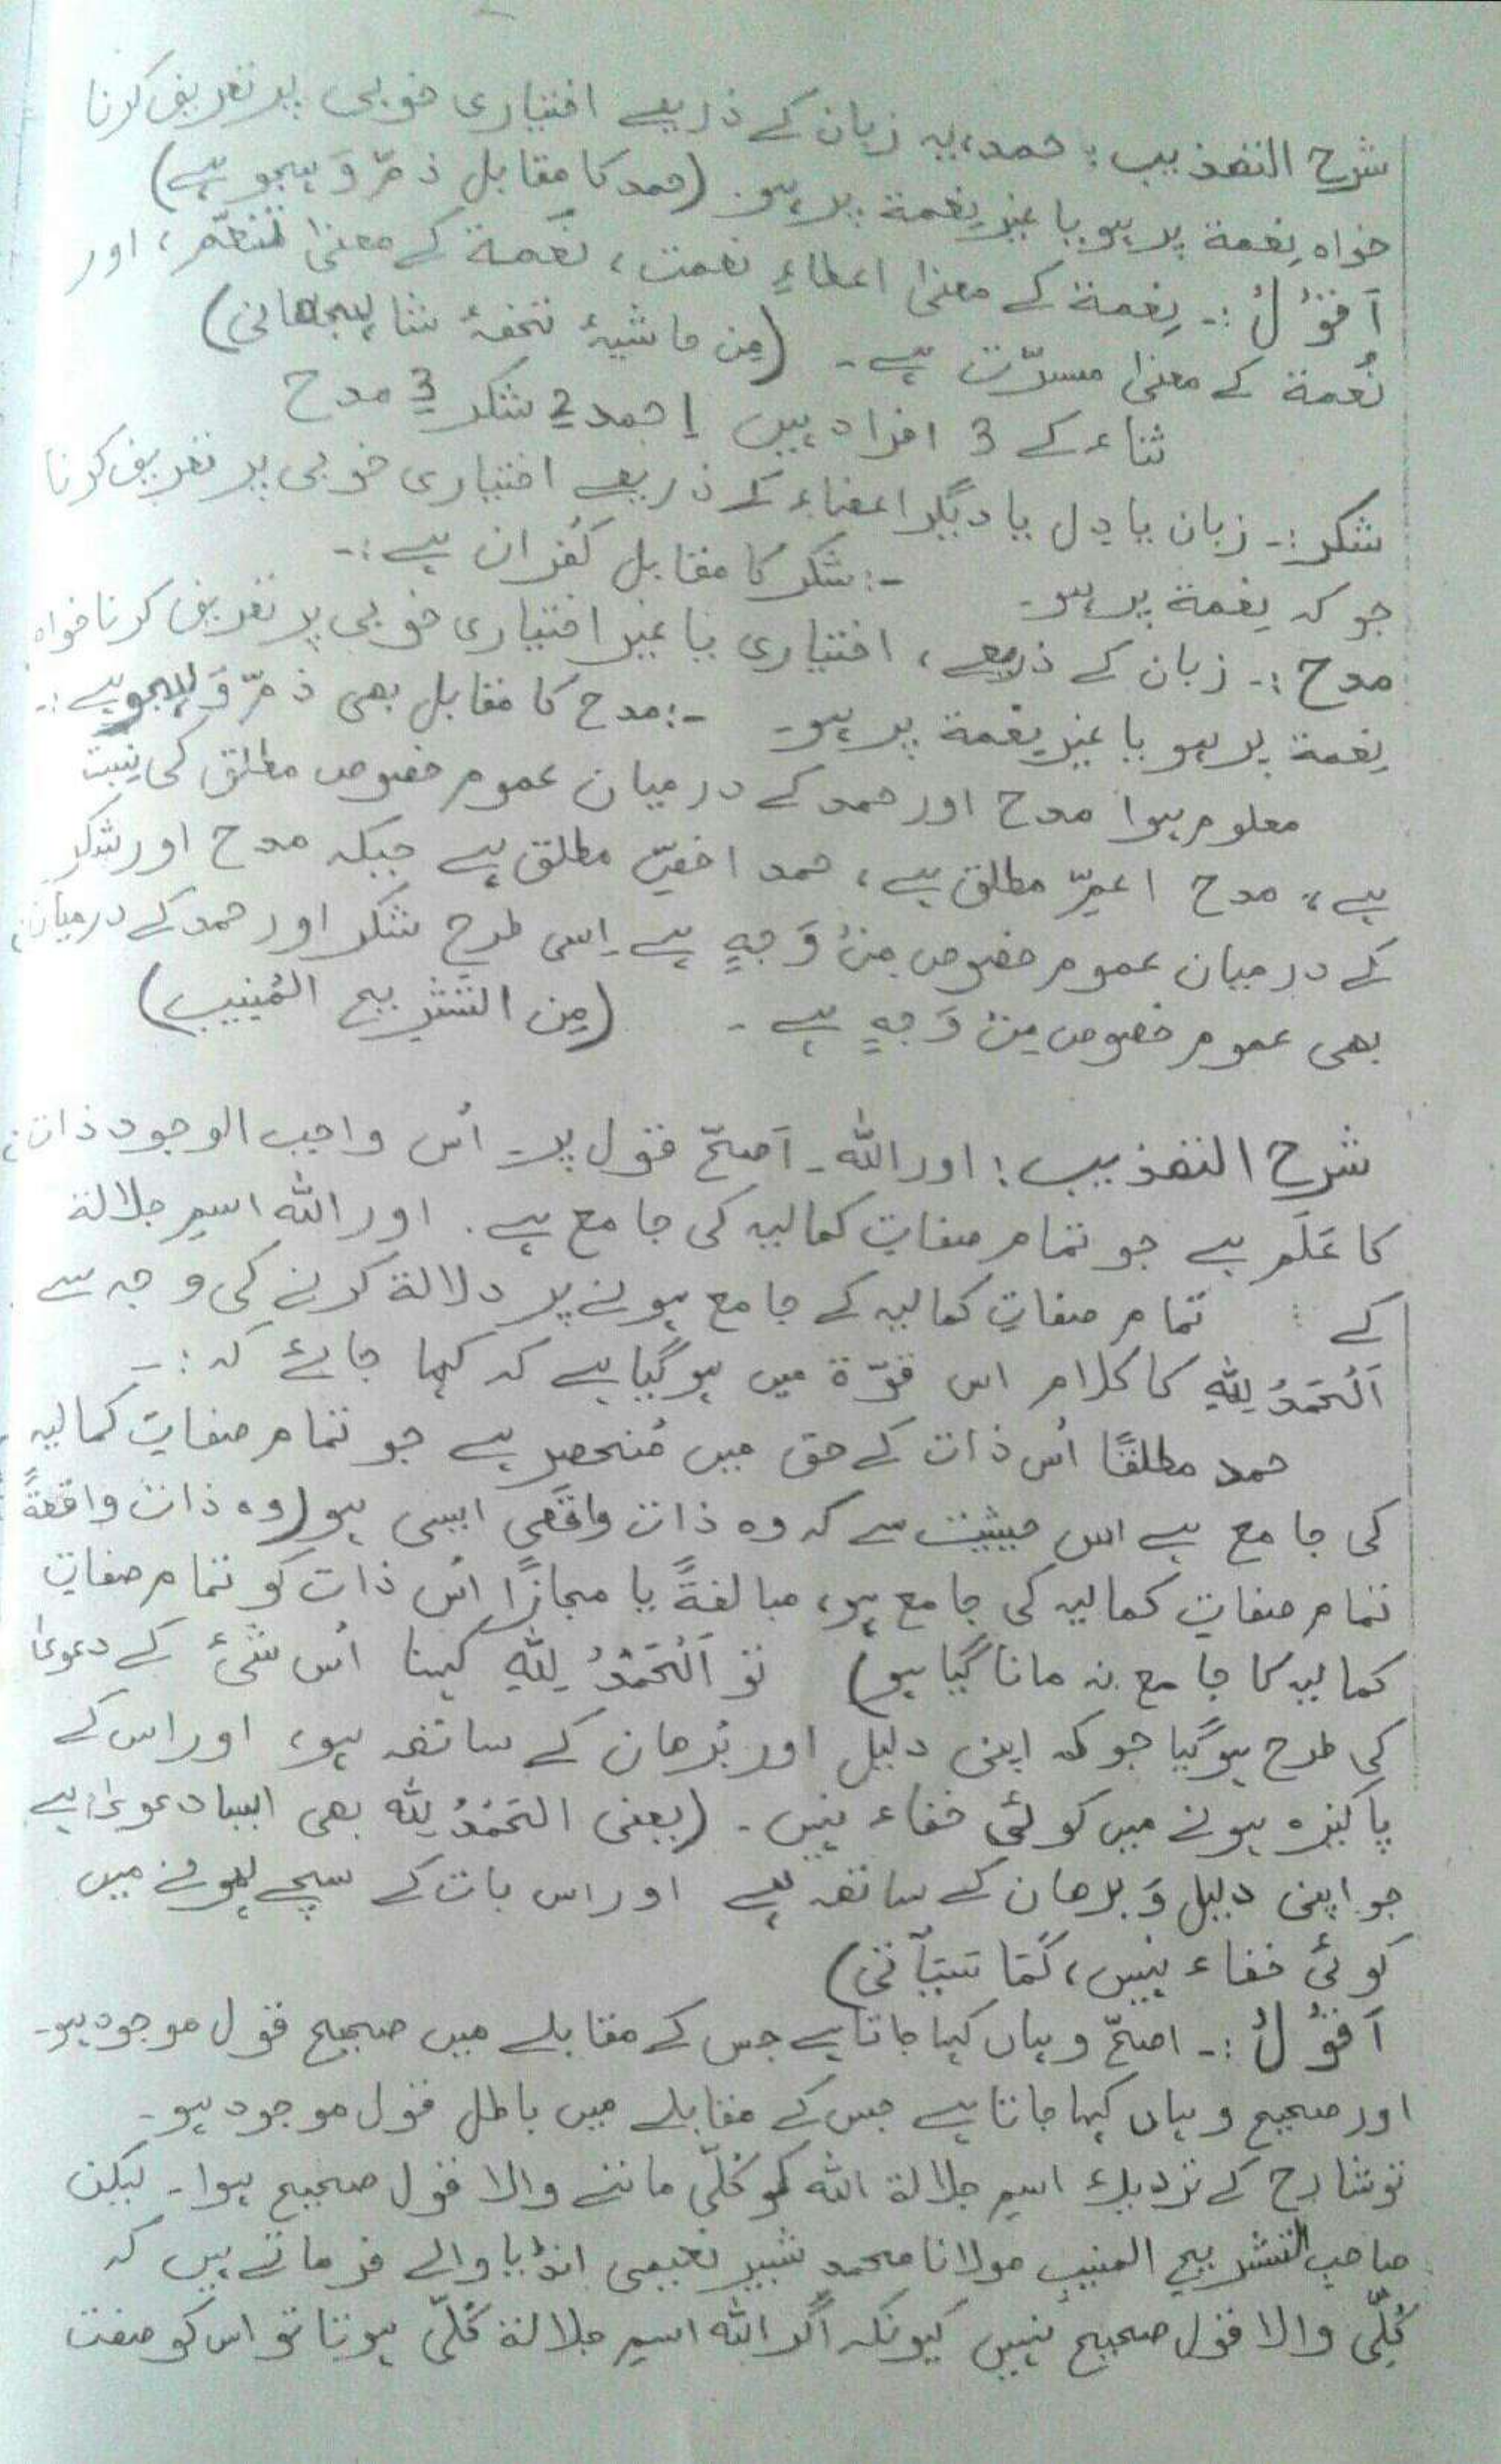 شرح التھذیب: حمد، یہ زبان کے ذریعے اختیاری خوبی پر تعریف کرنا
خواہ نِعمة پر ہو یا غیرِ نِعمة پر ہو۔ (حمد کا مقابل ذمّ وَ ہجو ہے)
اَقُوْلُ :۔ نِعمة کے معنیٰ اعطاءِ نعمت، نَعمة کے معنیٰ تنعّم، اور
نُعمة کے معنیٰ مسرّت ہے۔ (مِن حاشیۂ تحفۂ شاہجھانی)
ثناء کے 3 افراد ہیں 1 حمد 2 شکر 3 مدح
شکر :۔ زبان یا دِل یا دیگر اعضاء کے ذریعے اختیاری خوبی پر تعریف کرنا
جو کہ نِعمة پر ہو۔ -: شکر کا مقابل کُفران ہے :-
مدح :۔ زبان کے ذریعے، اختیاری یا غیر اختیاری خوبی پر تعریف کرنا خواہ
نِعمة پر ہو یا غیرِ نِعمة پر ہو۔ -: مدح کا مقابل بھی ذمّ وَ ہجو ہے :-
معلوم ہوا مدح اور حمد کے درمیان عموم خصوص مطلق کی نسبت
ہے، مدح اعمّ مطلق ہے، حمد اخصّ مطلق ہے جبکہ مدح اور شکر
کے درمیان عموم خصوص مِنْ وَجہٍ ہے اِسی طرح شکر اور حمد کے درمیان
بھی عموم خصوص مِن وَجہٍ ہے۔ (مِن التشریح المُنیب)
شرح التھذیب: اور اللہ۔ اَصحّ قول پر۔ اُس واجب الوجود ذات
کا عَلَم ہے جو تمام صفاتِ کمالیہ کی جامع ہے۔ اور اللہ اسمِ جلالة
کے تمام صفاتِ کمالیہ کے جامع ہونے پر دلالة کرنے کی وجہ سے
اَلْحَمْدُ لِلّٰہِ کا کلام اس قوّة میں ہو گیا ہے کہ کہا جائے کہ :-
حمد مطلقًا اُس ذات کے حق میں مُنحصر ہے جو تمام صفاتِ کمالیہ
کی جامع ہے اس حیثیت سے کہ وہ ذات واقعی ایسی ہو (وہ ذات واقعةً
تمام صفاتِ کمالیہ کی جامع ہو، مبالغةً یا مجازًا اُس ذات کو تمام صفاتِ
کمالیہ کا جامع نہ مانا گیا ہو) تو اَلْحَمْدُ لِلّٰہِ کہنا اُس شئ کے دعویٰ
کی طرح ہو گیا جو کہ اپنی دلیل اور بُرھان کے ساتھ ہو، اور اس کے
پاکیزہ ہونے میں کوئی خفاء نہیں۔ (یعنی الحَمْدُ لِلّٰہ بھی ایسا دعویٰ ہے
جو اپنی دلیل وَ برھان کے ساتھ ہے اور اس بات کے سچے ہونے میں
کوئی خفاء نہیں، کَمَا سَیَأتی)
اَقُوْلُ :۔ اصحّ وہاں کہا جاتا ہے جس کے مقابلے میں صحیح قول موجود ہو۔
اور صحیح وہاں کہا جاتا ہے جس کے مقابلے میں باطل قول موجود ہو۔
تو شارح کے نزدیک اسمِ جلالة اللہ کو کُلّی ماننے والا قول صحیح ہوا۔ لیکن
صاحب التشریح المنیب مولانا محمد شبیر نعیمی انڈیا والے فرماتے ہیں کہ
کُلّی والا قول صحیح نہیں کیونکہ اگر اللہ اسمِ جلالة کُلّی ہوتا تو اس کو صفت